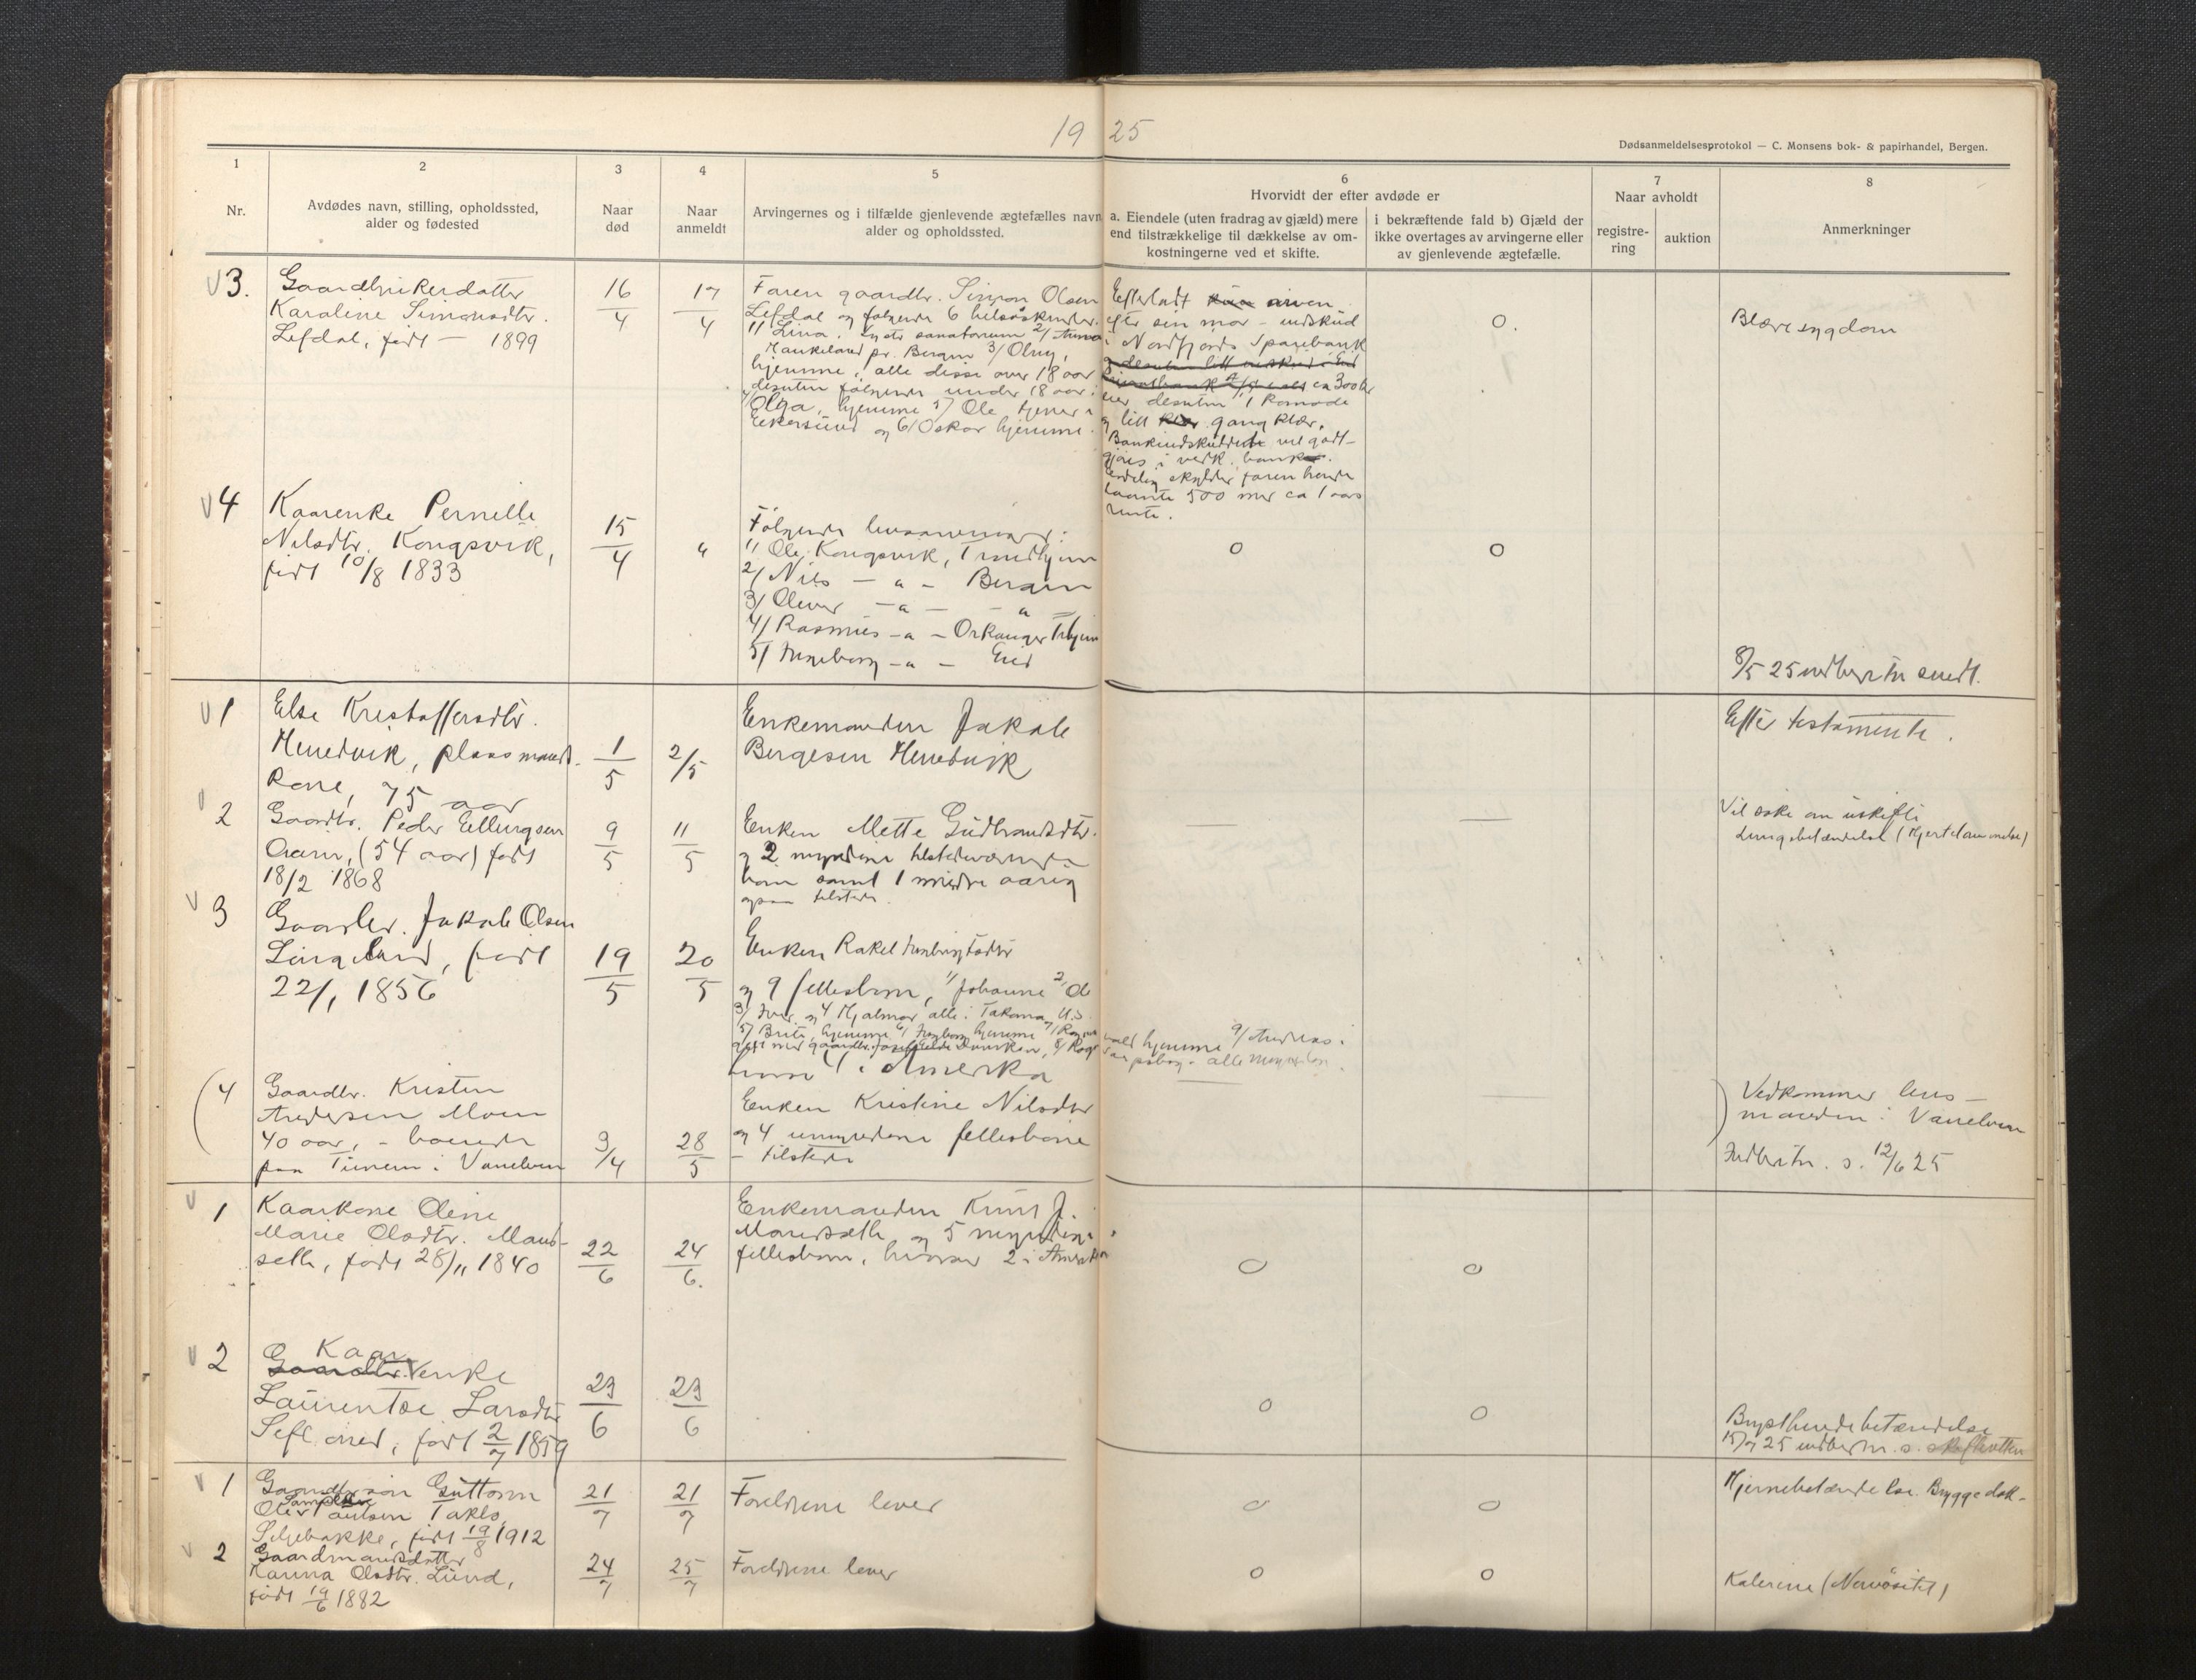 19 25
Dødsanmeldelsesprotokol — C. Monsens bok- & papirhandel, Bergen.
1
Nr.
2
Avdødes navn, stilling, opholdssted,
alder og fødested
3
Naar
død
4
Naar
anmeldt
5
Arvingernes og i tilfælde gjenlevende ægtefælles navn
alder og opholdssted.
6
Hvorvidt der efter avdøde er
a. Eiendele (uten fradrag av gjæld) mere
end tilstrækkelige til dækkelse av om-
kostningerne ved et skifte.
i bekræftende fald b) Gjæld der
ikke overtages av arvingerne eller
av gjenlevende ægtefælle.
7
Naar avholdt
registre-
ring
auktion
8
Anmerkninger
3.
Gaardbrukerdatter
Karoline Simonsdtr.
Lefdal, født — 1899
16/4
17/4
Faren gaardbr. Simon Olsen
Lefdal og følgende 6 helsøskende.
1/ Lina, Lyster sanatorium 2/ Anna
Haukeland pr. Bergen 3/ Oluf,
hjemme, alle disse over 18 aar
desuten følgende under 18 aar:
4/ Olga, hjemme 5/ Ole tjener i
Eikersund og 6/ Oskar hjemme.
Efterladt arven
efter sin mor – indskud
i Nordfjords Sparebank
ca 300 kr
eier desuten 1 Komode
og litt gang klær.
Bankindskuddet vil godt-
gjøres i vedk. bank.
Endelig skylder faren hende
laante 500 mer ca 1 aars
rente.
0.
Blæresygdom
4
Kaarenke Pernille
Nilsdtr. Kongsvik,
født 10/8 1833
15/4
"
Følgende livsarvinger:
1/ Ole Kongsvik, Trondhjem
2/ Nils — " — Bergen
3/ Oliver — " — "
4/ Rasmus — " — Orkanger Trhjem
5/ Ingeborg — " — Eid
0
0
8/5 25 indberetn sendt.
1
Else Kristoffersdtr.
Hennedvik, plassmands-
kone, 75 aar
1/5
2/5
Enkemanden Jakob
Bergesen Hennedvik
Efter testamente.
2
Gaardbr. Peder Ellingsen
Aarin, (54 aar) født
18/2 1868
9/5
11/5
Enken Mette Gudbrandsdtr.
og 2 myndine tilstedeværende
børn samt 1 mindreaarig
ogsaa tilstede.
—
Vil søke om uskifte
Lungebetændelse (Hjertelammelse)
3
Gaardbr. Jakob Olsen
Lingelund, født
22/1 1856
19/5
20/5
Enken Rakel
og 9 fellesbørn, 1/ Johanne 2/ Ole
3/ Iver og 4 Hjalmar alle i Takoma, U.S.
5/ Brite, hjemme 6/ Ingeborg hjemme
hjemme 9/ Andreas i
alle myndige.
i Amerika
(4
Gaardbr. Kristen
Andersen Moen
40 aar, – boende
paa Tunem i Vanelven
3/4
28/5
Enken Kristine Nilsdtr
og 4 umyndine fellesbørn
– tilstede
—
—
) Vedkommer lens-
manden i Vanelven
Indberetn. s. 12/6 25
1
Kaarkone Oline
Marie Olsdtr. Mand-
seth, født 28/11 1840
22/6
24/6.
Enkemanden Knut J.
Mandseth og 5 myndine
fellesbørn, hvorav 2 i Amerika
0
0
2
Kaar
Gaardbr. enke
Laurentse Larsdtr
Sefland, født 2/7 1859
23/6
23/6
0
0
Brysthindebetændelse
15/7 25 indberetn. s. skifteretten
1
Gaardbr. søn Guttorm
Olsen Takle,
Seljebakke, født 19/8 1912
21/7
21/7
Foreldrene lever
0
0
Hjernebetændelse.
2
Gaardmandsdatter
Karina Olsdtr. Lund,
født 19/6 1882
24/7
25/7
Foreldrene lever
0
0
(Nervøsitet)